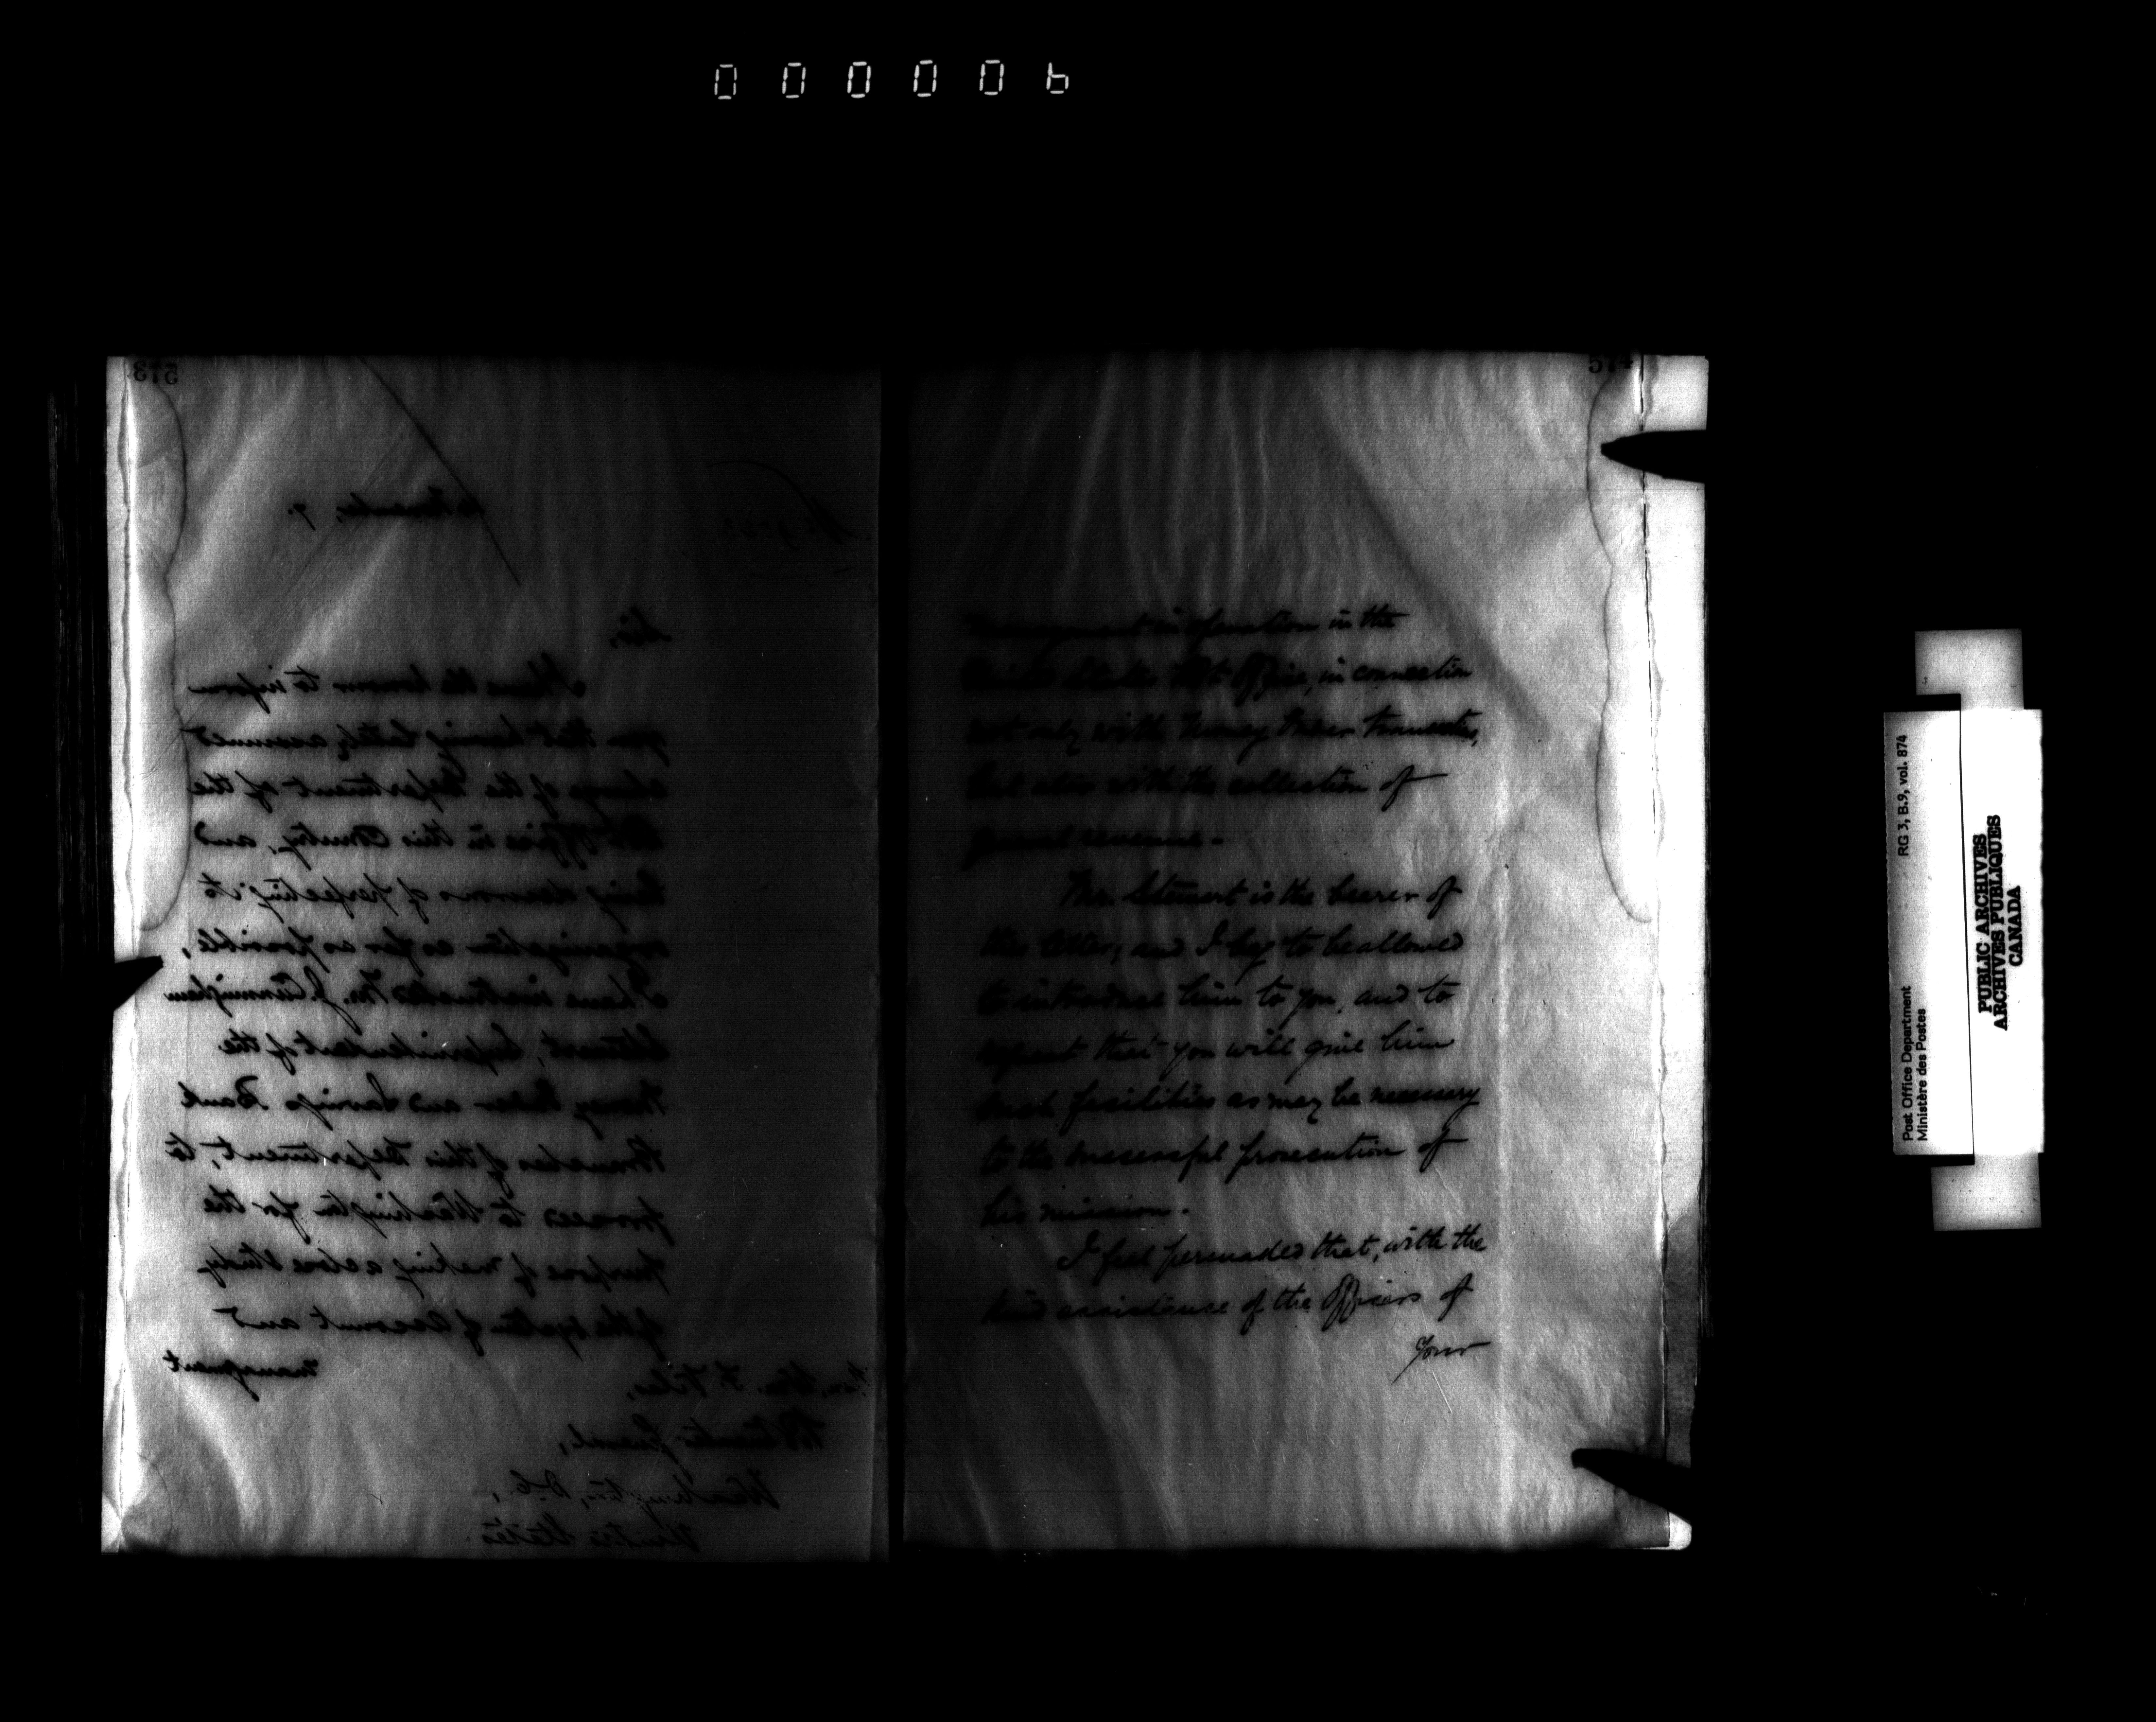 000006
573
No. 9023
November, 7.
Sir,
I have the honor to inform
you that having lately assumed
charge of the Department of the
Post Office in this Country, and
being desirous of perfecting its
organization as far as possible,
I have instructed Mr. J. Cunningham
Stewart, Superintendent of the
Money Order and Savings Bank
Branches of this Department, to
proceed to Washington for the
purpose of making a close study
of the system of Account and
management
Hon. Wm. F. Vilas,
Postmaster General,
Washington, D.C.,
United States.
574
management in operation in the
United States Post Office, in connection
not only with Money Order transactions,
but also with the collection of
general revenue.
Mr. Stewart is the bearer of
this letter, and I beg to be allowed
to introduce him to you, and to
request that you will give him
such facilities as may be necessary
to the successful prosecution of
his mission.
I feel persuaded that, with the
kind assistance of the Officers of
Your
RG 3, B.9, vol. 874
Post Office Department
Ministère des Postes
PUBLIC ARCHIVES
ARCHIVES PUBLIQUES
CANADA